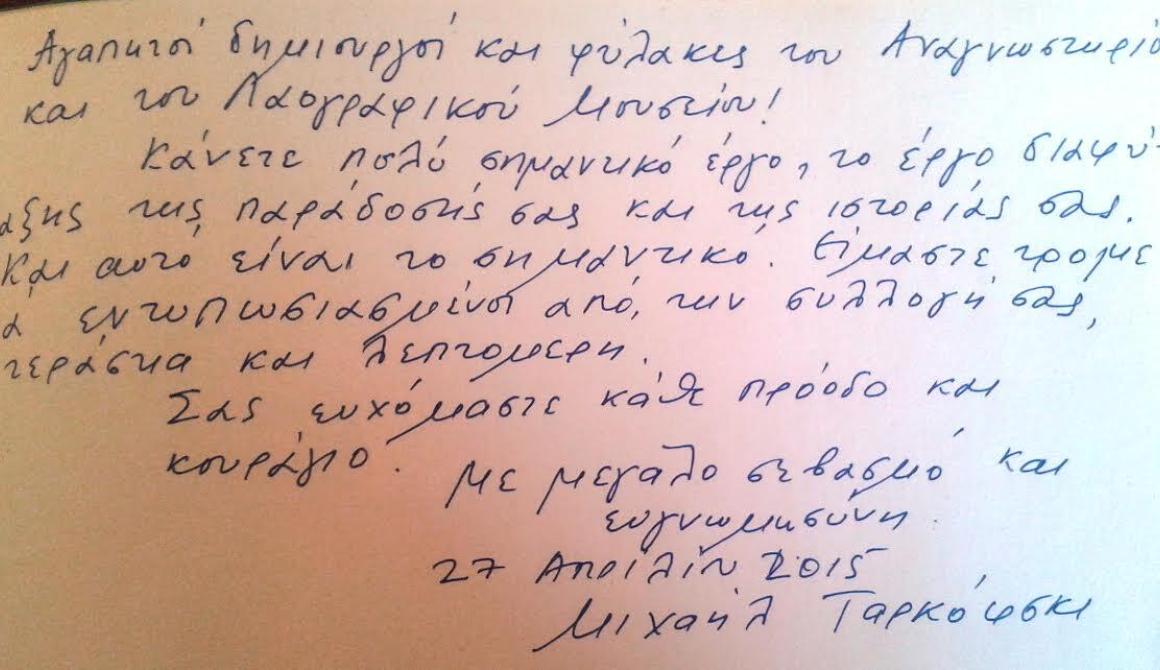 Αγαπητοί δημιουργοί και φύλακες του Αναγνωστηρίο
και του Λαογραφικού Μουσείου!
Κάνετε πολύ σημαντικό έργο, το έργο διαφύ-
αξης της παράδοσής σας και της ιστορίας σας.
Και αυτό είναι το σημαντικό. Είμαστε τρομε
ά εντυπωσιασμένοι από την συλλογή σας,
τεράστια και λεπτομερή.
Σας ευχόμαστε κάθε πρόοδο και
κουράγιο.
Με μεγάλο σεβασμό και
ευγνωμοσύνη.
27 Απριλίου 2015
Μιχαήλ Ταρκόφσκι